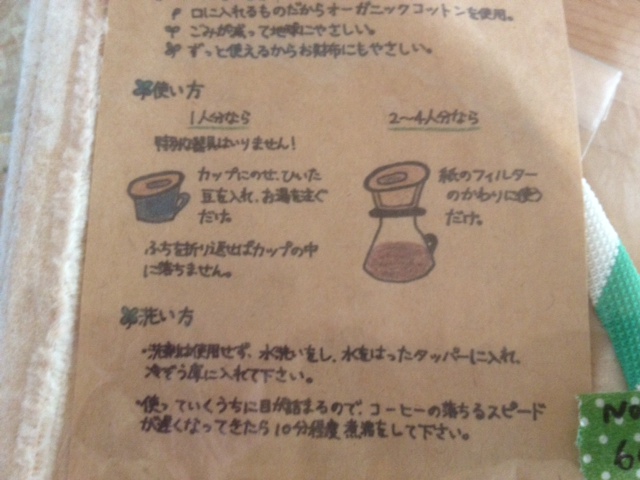 口に入れるものだからオーガニックコットンを使用。
ごみが減って地球にやさしい。
ずっと使えるからお財布にもやさしい。
使い方
1人分なら
2〜4人分なら
特別な器具はいりません!
カップにのせ、ひいた
豆を入れ、お湯を注ぐ
だけ。
ふちを折り返せばカップの中
に落ちません。
紙のフィルター
のかわりに使う
だけ。
洗い方
・洗剤は使用せず、水洗いをし、水をはったタッパーに入れ、
冷ぞう庫に入れて下さい。
・使っていくうちに目が詰まるので、コーヒーの落ちるスピード
が遅くなってきたら10分程度煮沸をして下さい。
No